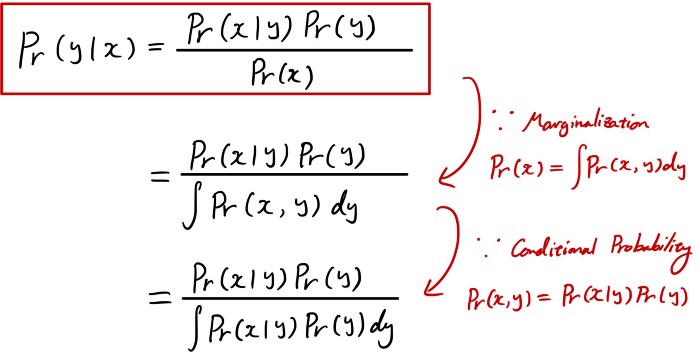 Pr(y|x) = Pr(x|y) Pr(y) / Pr(x)
= Pr(x|y) Pr(y) / ∫ Pr(x, y) dy
∵ Marginalization
Pr(x) = ∫Pr(x, y)dy
= Pr(x|y) Pr(y) / ∫ Pr(x|y) Pr(y) dy
∵ Conditional Probability
Pr(x,y) = Pr(x|y) Pr(y)